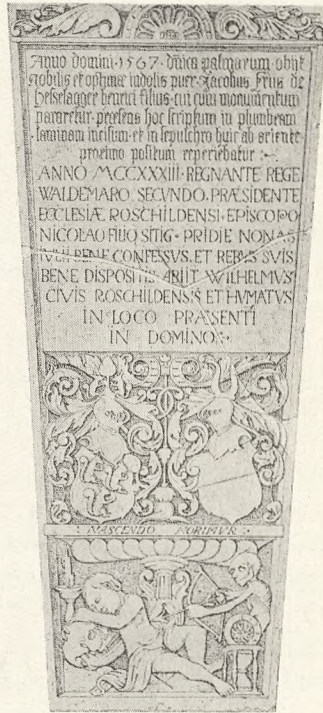 Anno domini · 1567 · dnica palmarum obijt
nobilis et optimæ indolis puer Jacobus Friis de
Hesselagger henrici filius · cui cum monumentum
pararetur · præsens hoc scriptum in plumbeam
laminam incisum · et in sepulchro huic ab oriente
proximo positum reperiebatur :~
ANNO MCCXXXIII · REGNANTE REGE
WALDEMARO SECVNDO · PRÆSIDENTE
ECCLESIÆ ROSCHILDENSI · EPISCOPO
NICOLAO FILIO STIG · PRIDIE NONAS
IVLII BENE CONFESSVS · ET REBVS SVIS
BENE DISPOSITIS ABIIT · WILHELMVS
CIVIS ROSCHILDENSIS ET HVMATVS
IN LOCO PRÆSENTI
IN DOMINO :~
: NASCENDO MORIMVR :